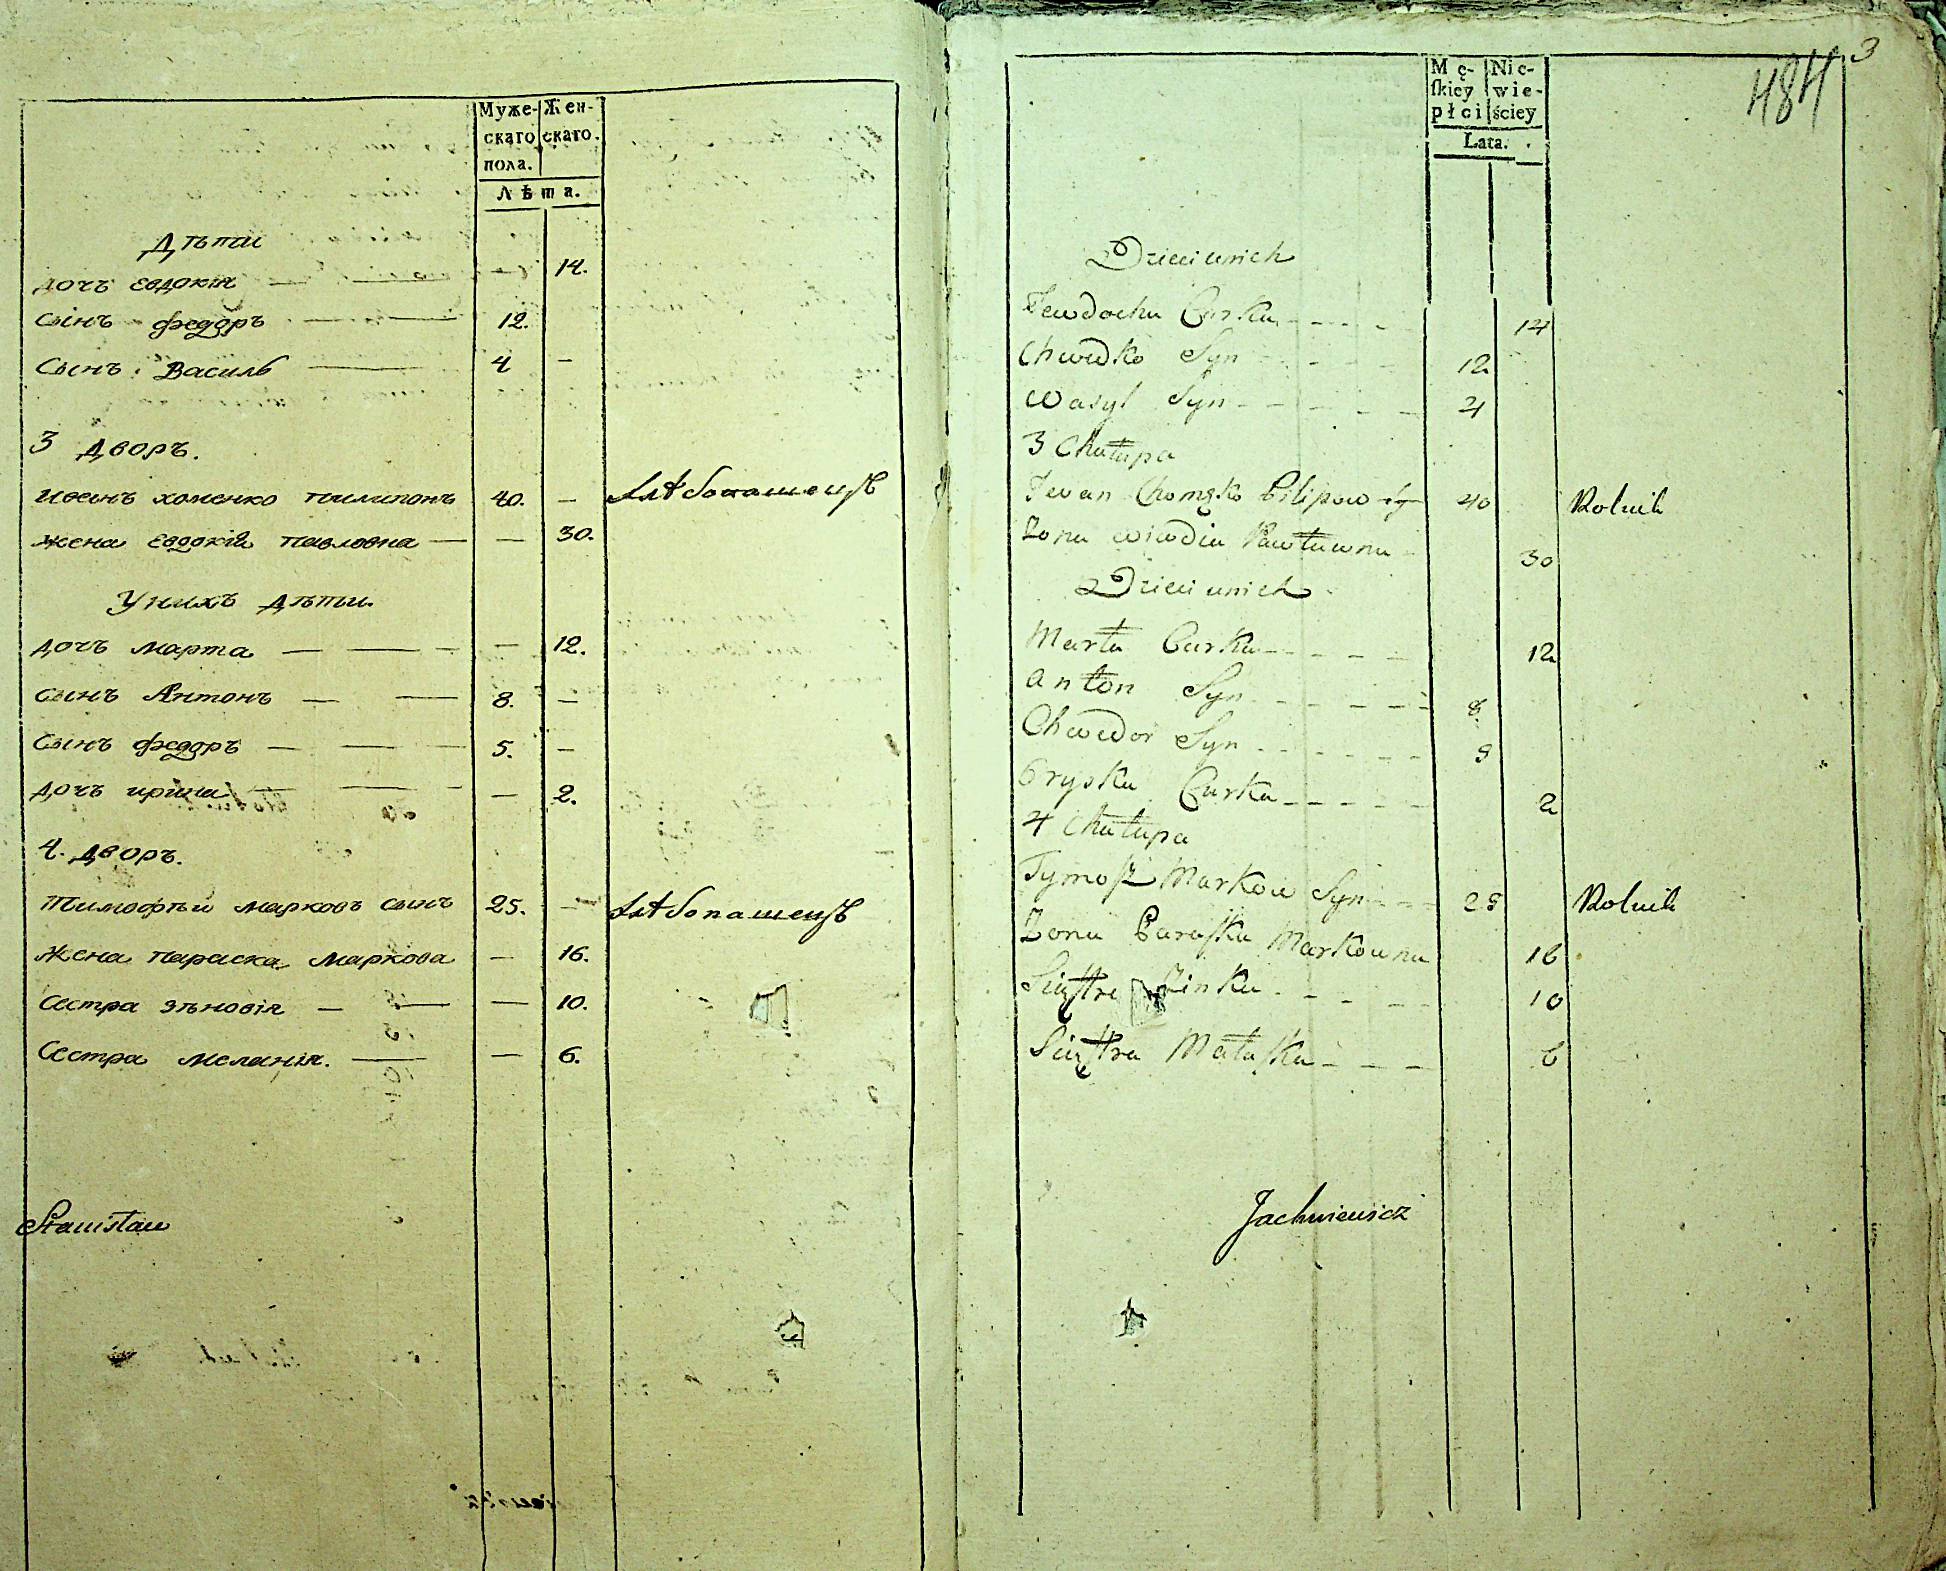 Муже- Жен-
скаго скаго.
пола.
Лѣта.
Дѣти
дочъ евдокія — — — 14.
сынъ федоръ — — 12.
Сынъ Василь — 4 —
3 дворъ.
иванъ хоменко пилиповъ 40. — хлѣбопашецъ
жена евдокія павловна — — 30.
Унихъ дѣти.
дочъ марта — — — — 12.
сынъ Антонъ — — 8. —
Сынъ федоръ — — — 5. —
дочъ ирина — — — 2.
4. дворъ.
Тимофѣй марковъ сынъ 25. — хлѣбопашецъ
жена параска маркова — 16.
сестра зѣновія — — — 10.
Сестра меланія. — — 6.
Stanisław
484 3
Mę- Nie-
skiey wie-
płci ściey
Lata.
Dzieci unich
Jewdocha Curka - - - - 14
Chwedko Syn - - - - 12
Wasyl Syn - - - - - 4
3 Chałupa
Jwan Chomęko Pilipow sy 40 Rolnik
Żona Wiwdia Pawławna - 30
Dzieci unich
Marta Curka - - - - 12
Anton Syn - - - - - 8.
Chwedor Syn - - - - 5
Oryska Curka - - - - - 2
4 Chałupa
Tymosz Markow Syn - - - 25 Rolnik
Żona Paraska Markowna 16
Siostra Zinka - - - - 10
Siostra Małaska - - - 6
Jachniewicz